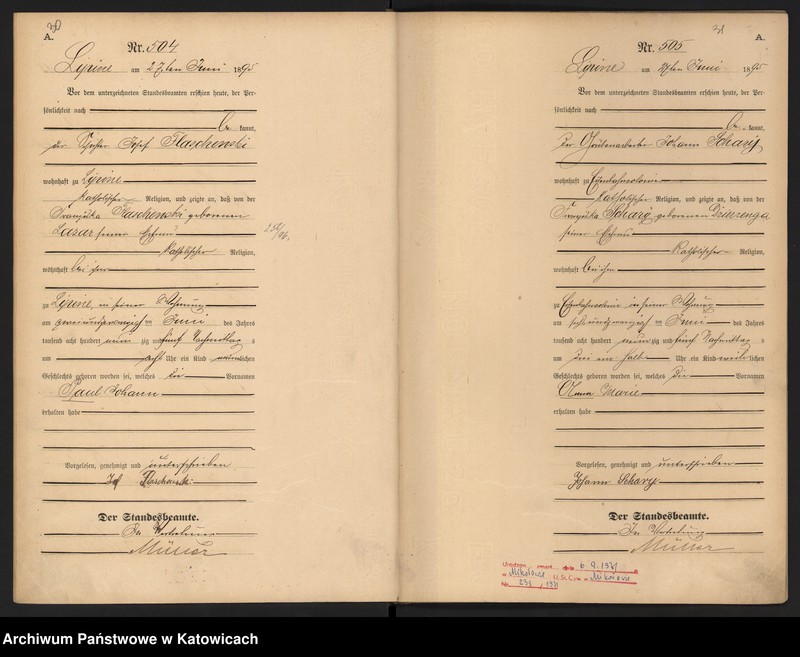 A.
Nr. 504
Lipine am 27ten Juni 1895
Vor dem unterzeichneten Standesbeamten erschien heute, der Per-
sönlichkeit nach
be kannt,
der Josef Flaschewski
wohnhaft zu Lipine
katholischer Religion, und zeigte an, daß von der
Franziska Flaschewski geborenen
Lazar seiner Ehefrau
katholischer Religion,
wohnhaft bei ihm
zu Lipine, in seiner Wohnung
am zweiundzwanzigsten Juni des Jahres
tausend acht hundert neun zig und fünf Nachmittags
um acht Uhr ein Kind männlichen
Geschlechts geboren worden sei, welches die Vornamen
Paul Johann
erhalten habe
Vorgelesen, genehmigt und unterschrieben
Josef Flaschewski
Der Standesbeamte.
In Vertretung
Müller
A.
Nr. 505
Lipine am 27ten Juni 1895
Vor dem unterzeichneten Standesbeamten erschien heute, der Per-
sönlichkeit nach
be kannt,
der Johann Schary
wohnhaft zu Eisenbahnkolonie
katholischer Religion, und zeigte an, daß von der
Franziska Schary geborenen
seiner Ehefrau
katholischer Religion,
wohnhaft bei ihm
zu Eisenbahnkolonie in seiner Wohnung
am Juni des Jahres
tausend acht hundert neun zig und fünf Nachmittags
um Uhr ein Kind weiblichen
Geschlechts geboren worden sei, welches die Vornamen
Anna Marie
erhalten habe
Vorgelesen, genehmigt und unterschrieben
Johann Schary
Der Standesbeamte.
In Vertretung
Müller
6.9.1971
U.S.C. w Mikołowie
Archiwum Państwowe w Katowicach